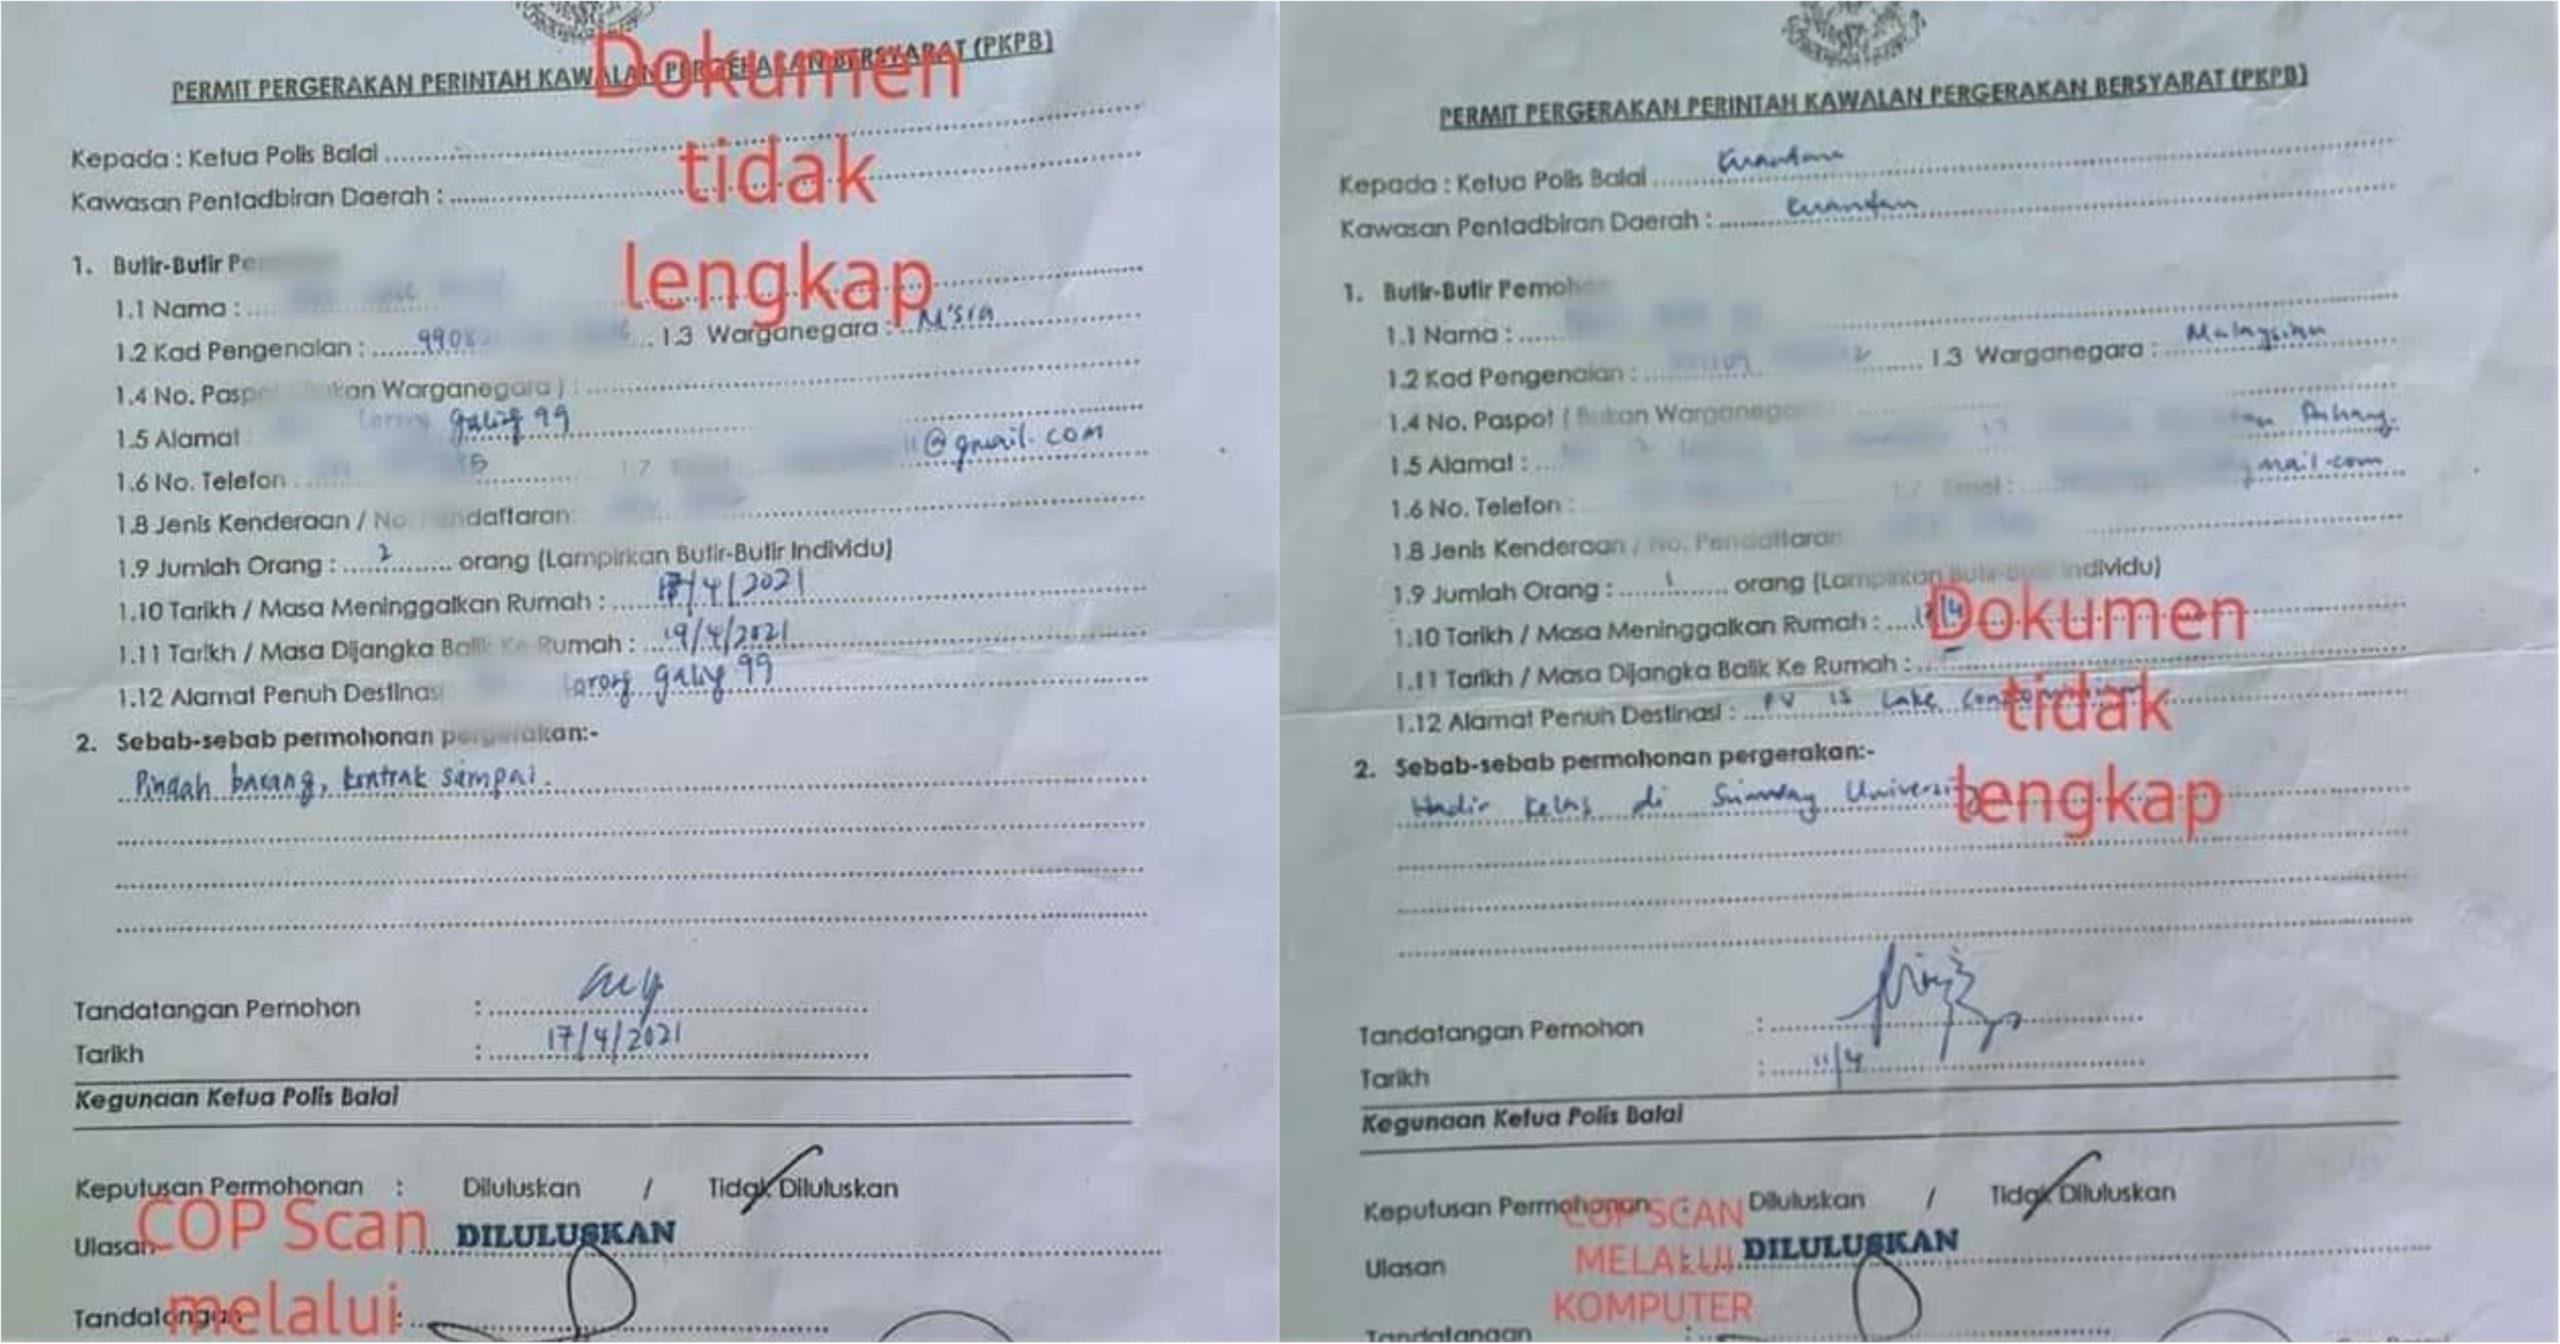 PERMIT PERGERAKAN PERINTAH KAWALAN PERGERAKAN BERSYARAT (PKPB)
Dokumen
tidak
lengkap
Kepada : Ketua Polis Balai
Kawasan Pentadbiran Daerah :
1. Butir-Butir Pe
1.1 Nama :
1.2 Kad Pengenalan : 9908 1.3 Warganegara : M'sia
1.4 No. Pasp kan Warganegara ) :
1.5 Alamat Lorong galing 99
1.6 No. Telefon 1.7 @gmail.com
1.8 Jenis Kenderaan / No. ndaftaran:
1.9 Jumlah Orang : 2 orang (Lampirkan Butir-Butir Individu)
1.10 Tarikh / Masa Meninggalkan Rumah : 17/4/2021
1.11 Tarikh / Masa Dijangka Balik Ke Rumah : 19/4/2021
1.12 Alamat Penuh Destinasi lorong galing 99
2. Sebab-sebab permohonan pergerakan:-
Pindah barang, kontrak sampai.
Tandatangan Pemohon :
Tarikh : 17/4/2021
Kegunaan Ketua Polis Balai
Keputusan Permohonan : Diluluskan / Tidak Diluluskan
Ulasan DILULUSKAN
Tandatangan :
COP Scan
melalui
PERMIT PERGERAKAN PERINTAH KAWALAN PERGERAKAN BERSYARAT (PKPB)
Kepada : Ketua Polis Balai Kuantan
Kawasan Pentadbiran Daerah : Kuantan
1. Butir-Butir Pemohon
1.1 Nama :
1.2 Kad Pengenalan : 1.3 Warganegara : Malaysian
1.4 No. Paspot ( Bukan Warganega
1.5 Alamat : Pahang.
1.6 No. Telefon : 1.7 Emel : gmail.com
1.8 Jenis Kenderaan / No. Pendaftaran
1.9 Jumlah Orang : 1 orang (Lampirkan Butir-Butir Individu)
1.10 Tarikh / Masa Meninggalkan Rumah :
1.11 Tarikh / Masa Dijangka Balik Ke Rumah : -
1.12 Alamat Penuh Destinasi : PV 15 Lake Condominium
Dokumen
tidak
lengkap
2. Sebab-sebab permohonan pergerakan:-
Hadir kelas di Sunway University
Tandatangan Pemohon :
Tarikh : 11/4
Kegunaan Ketua Polis Balai
Keputusan Permohonan : Diluluskan / Tidak Diluluskan
Ulasan : DILULUSKAN
Tandatangan :
COP SCAN
MELALUI
KOMPUTER